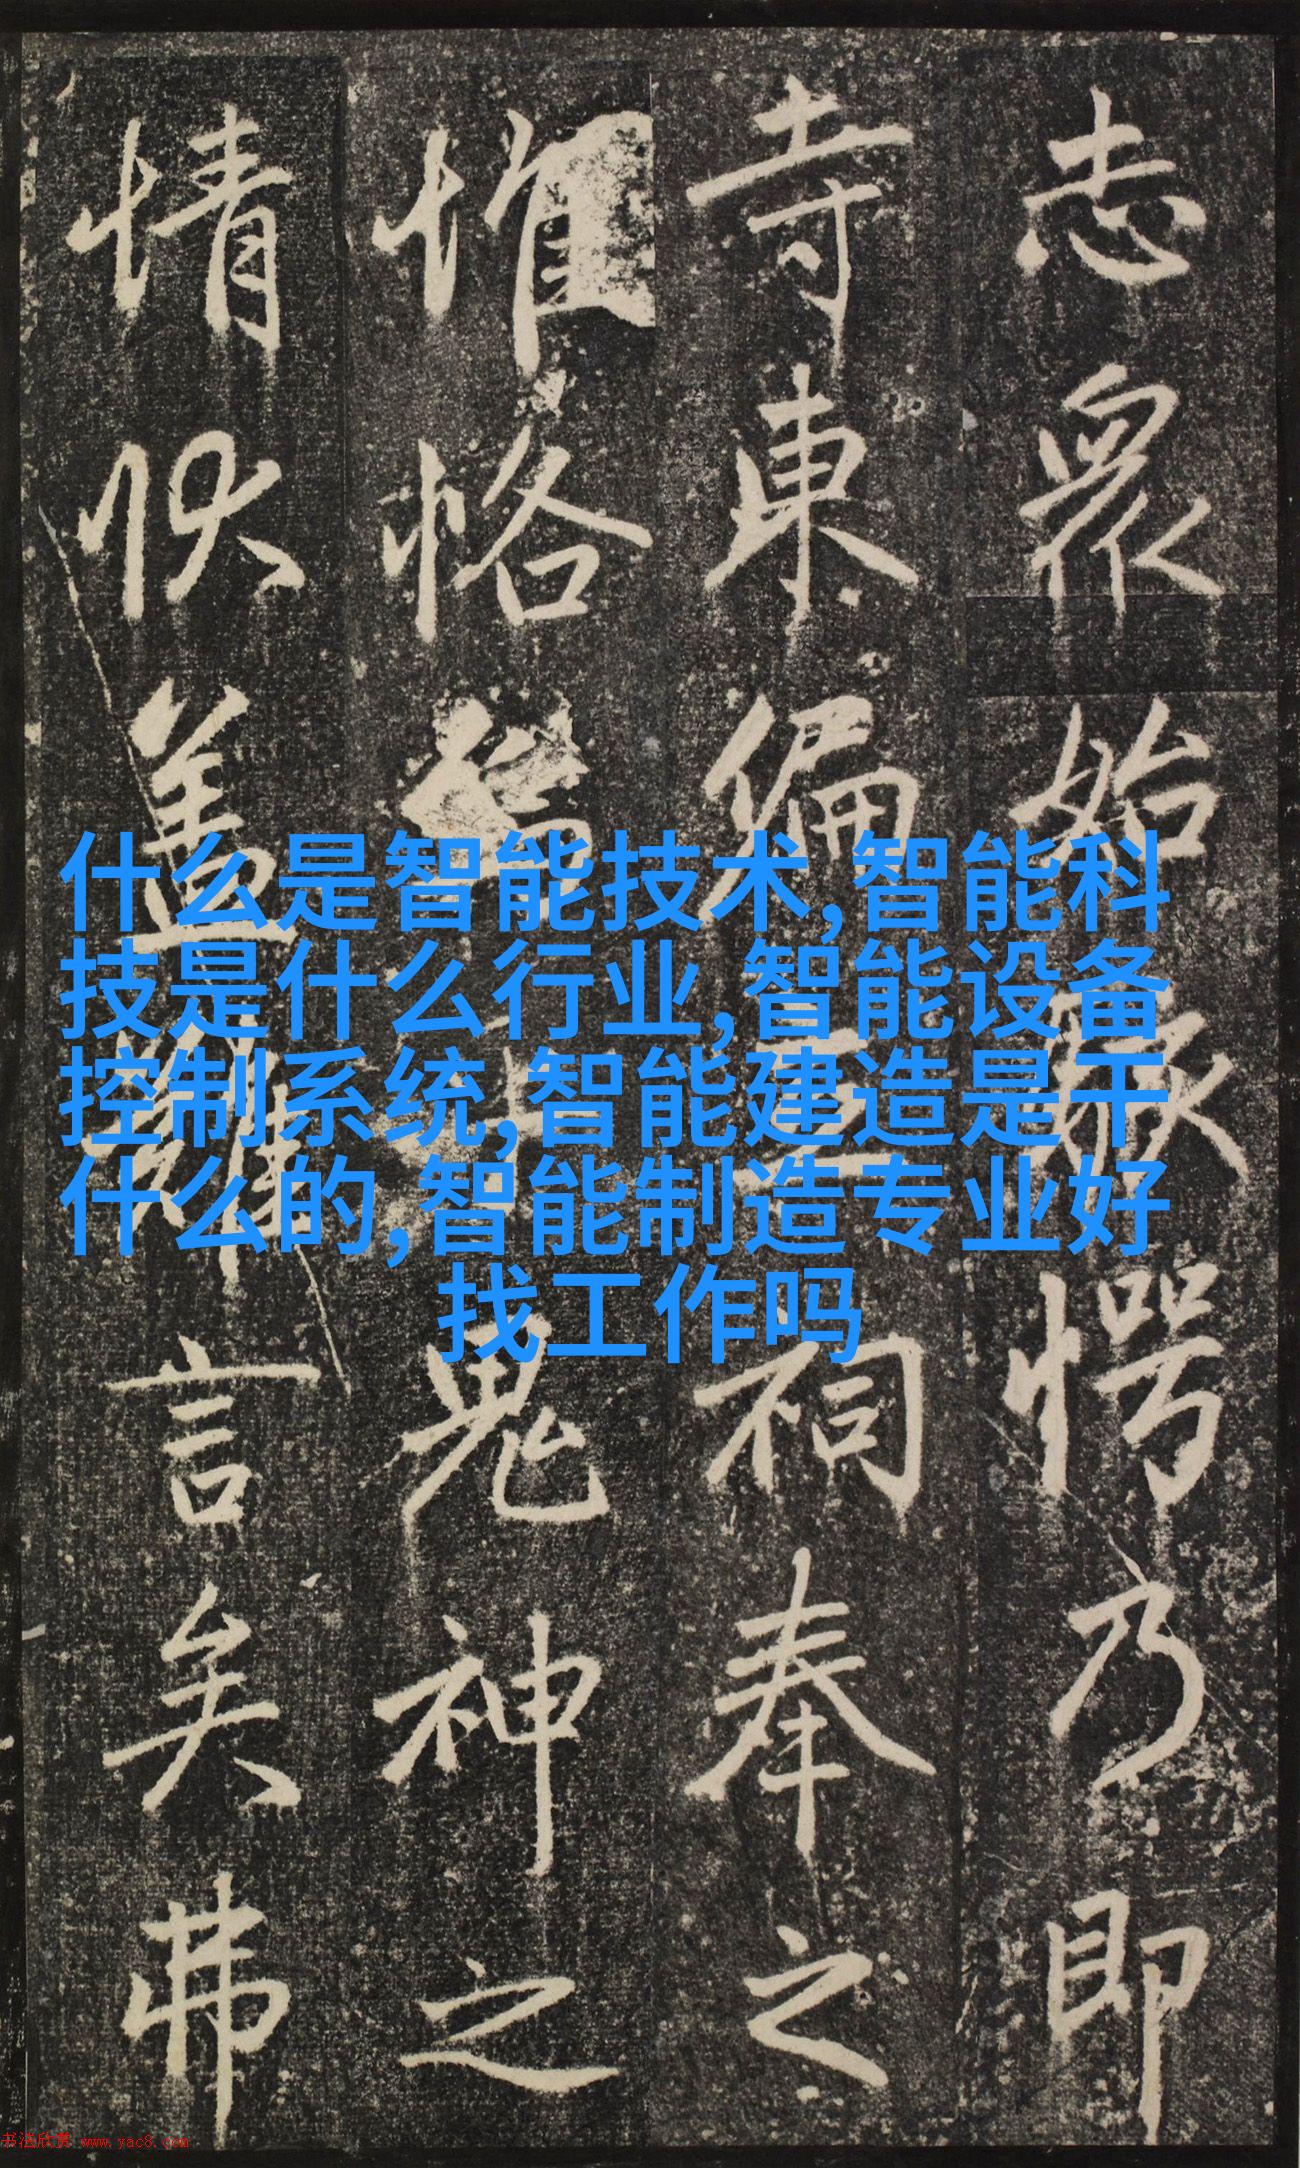 什么是智能技术,智能科
技是什么行业,智能设备
控制系统,智能建造是干
什么的,智能制造专业好
找工作吗
志眾始駭愕乃即
寺東偏祠奉之
惟恪鬼神之
情狀盖難言矣弗
书法欣赏 www.yac8.com